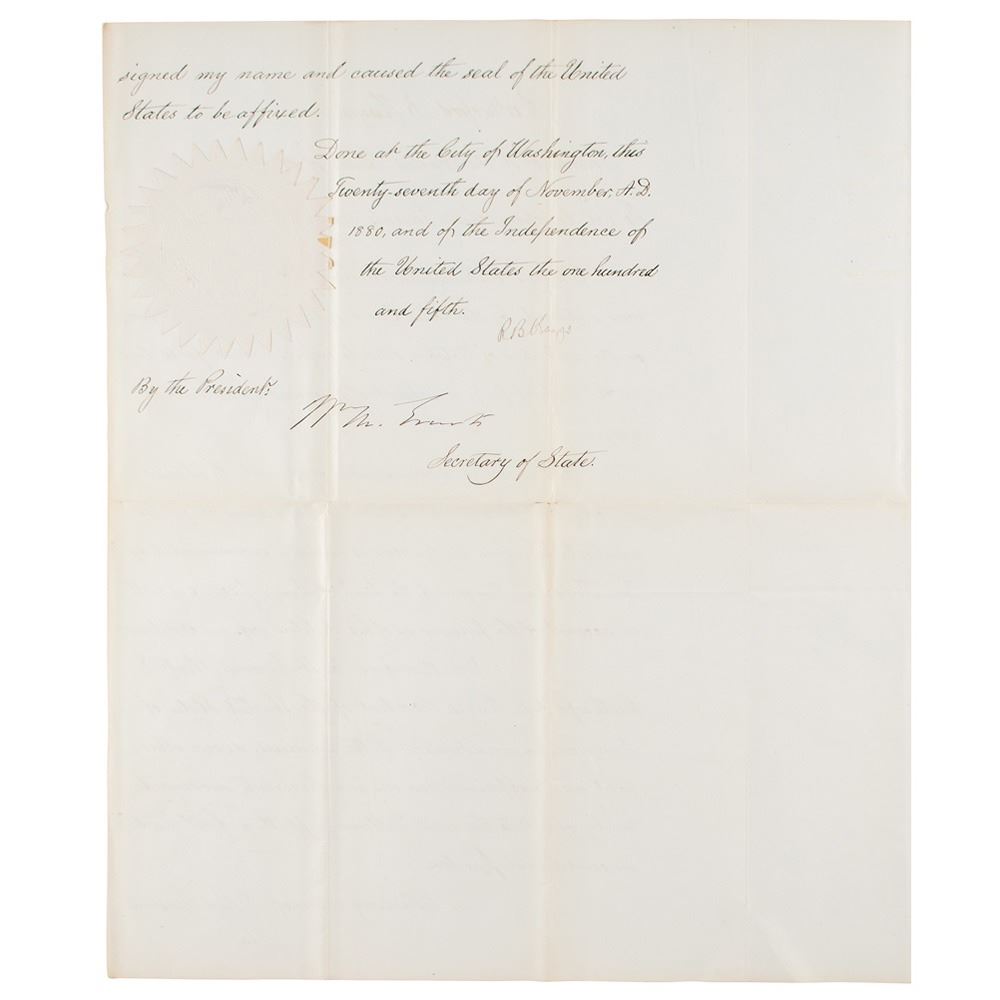 signed my name and caused the seal of the United
States to be affixed.
Done at the City of Washington, this
Twenty-seventh day of November, A.D.
1880, and of the Independence of
the United States the one hundred
and fifth.
R B Hayes
By the President:
Wm M. Evarts
Secretary of State.